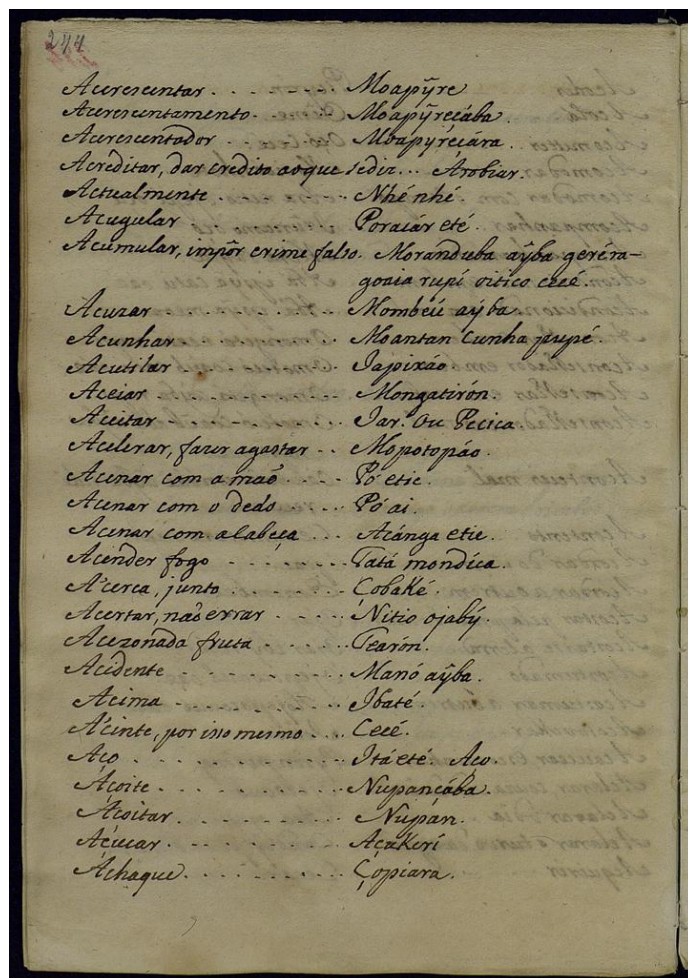 244
Acerescentar . . . . . . . . Moapŷre
Acerescentamento . . . . . Moapŷreçába.
Acerescentador . . . . . Moapŷreçára.
Acreditar, dar credito ao que se diz . . . Arobiar.
Actualmente . . . . . . . . Nhé nhé.
Acugular . . . . . . . . . . Poraçár eté.
Acumular, impôr crime falso. Moranduba aŷba geréra-
goaia rupí oitico cecé.
Acuzar . . . . . . . . . . . . Mombeú aŷba.
Acunhar . . . . . . . . . . . Moantan Cunha pupé.
Acutilar . . . . . . . . . . . Japixáo
Aceiar . . . . . . . . . . . . Mongatirón.
Aceitar . . . . . . . . . . . . Jar. Ou Pecica.
Acelerar, fazer agastar . . Mopotopáo.
Acenar com a maõ . . . . Pó etic.
Acenar com o dedo . . . . Pó ai.
Acenar com a cabeça . . . Acánga etic.
Acender fogo . . . . . . . . Tatá mondíca.
A'cerca, junto . . . . . . . . Çobaké.
Acertar, naõ errar . . . . . Nitio ojabŷ.
Acezonada fruta . . . . . . Tearón.
Acidente . . . . . . . . . . . Manó aŷba.
Acima . . . . . . . . . . . . . Ibaté.
A'cinte, por isso mesmo . . . . Cecé.
Aço . . . . . . . . . . . . . . . Itá eté. Aço.
Açoite . . . . . . . . . . . . . Nupançába.
Açoitar . . . . . . . . . . . . Nupán.
Açucar . . . . . . . . . . . . Açukirí
Achaque . . . . . . . . . . . Çopiara.